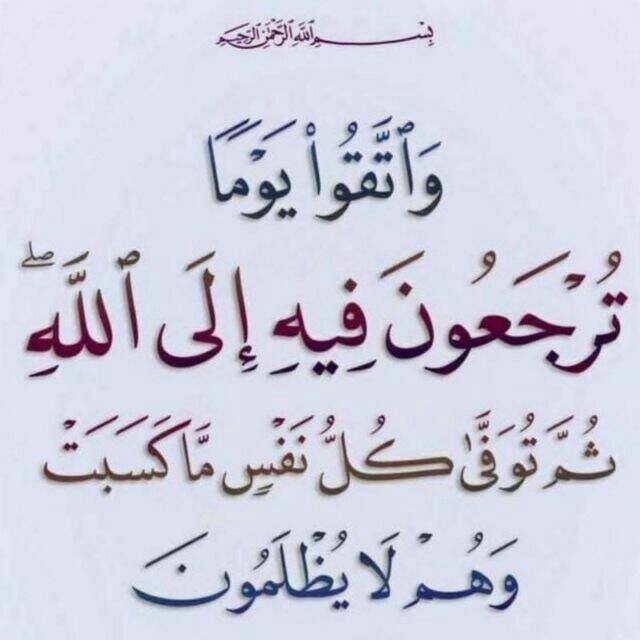 بِسْمِ ٱللَّهِ ٱلرَّحْمَٰنِ ٱلرَّحِيمِ
وَٱتَّقُوا۟ يَوْمًا
تُرْجَعُونَ فِيهِ إِلَى ٱللَّهِۖ
ثُمَّ تُوَفَّىٰ كُلُّ نَفْسٍ مَّا كَسَبَتْ
وَهُمْ لَا يُظْلَمُونَ